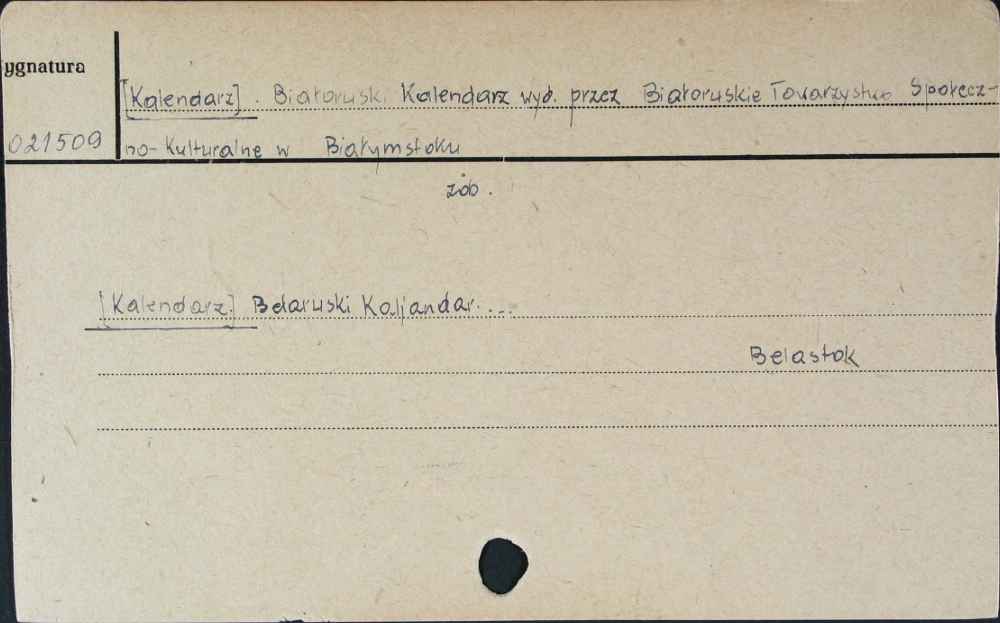 ygnatura
[Kalendarz]. Białoruski Kalendarz wyd. przez Białoruskie Towarzystwo Społecz-
021509
no-Kulturalne w Białymstoku
zob.
[Kalendarz] Belaruski Kaljandar...
Belastok